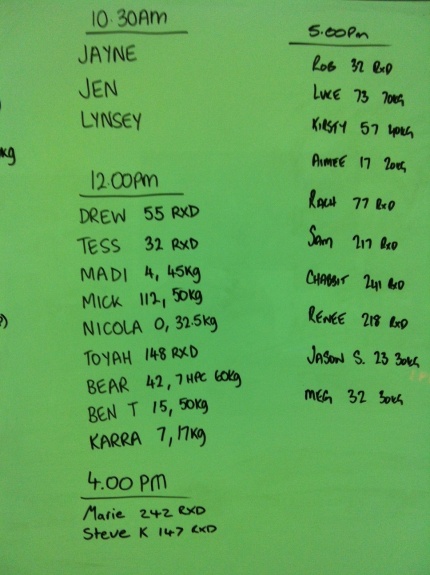 10.30Am
JAYNE
JEN
LYNSEY
12.00pm
DREW 55 RXD
TESS 32 RXD
MADI 4, 45kg
MICK 112, 50kg
NICOLA 0, 32.5kg
TOYAH 148 RXD
BEAR 42, 7 HPC 60kg
BEN T 15, 50kg
KARRA 7, 17kg
4.00 PM
Marie 242 RXD
Steve K 147 RXD
5.00Pm
ROB 32 RxD
LUKE 73 70kg
KIRSTY 57 40kg
AIMEE 17 20kg
RACH 77 RxD
Sam 217 RxD
CHABBIT 241 RxD
RENEE 218 RxD
JASON S. 23 30kg
MEG 32 30kg
kg